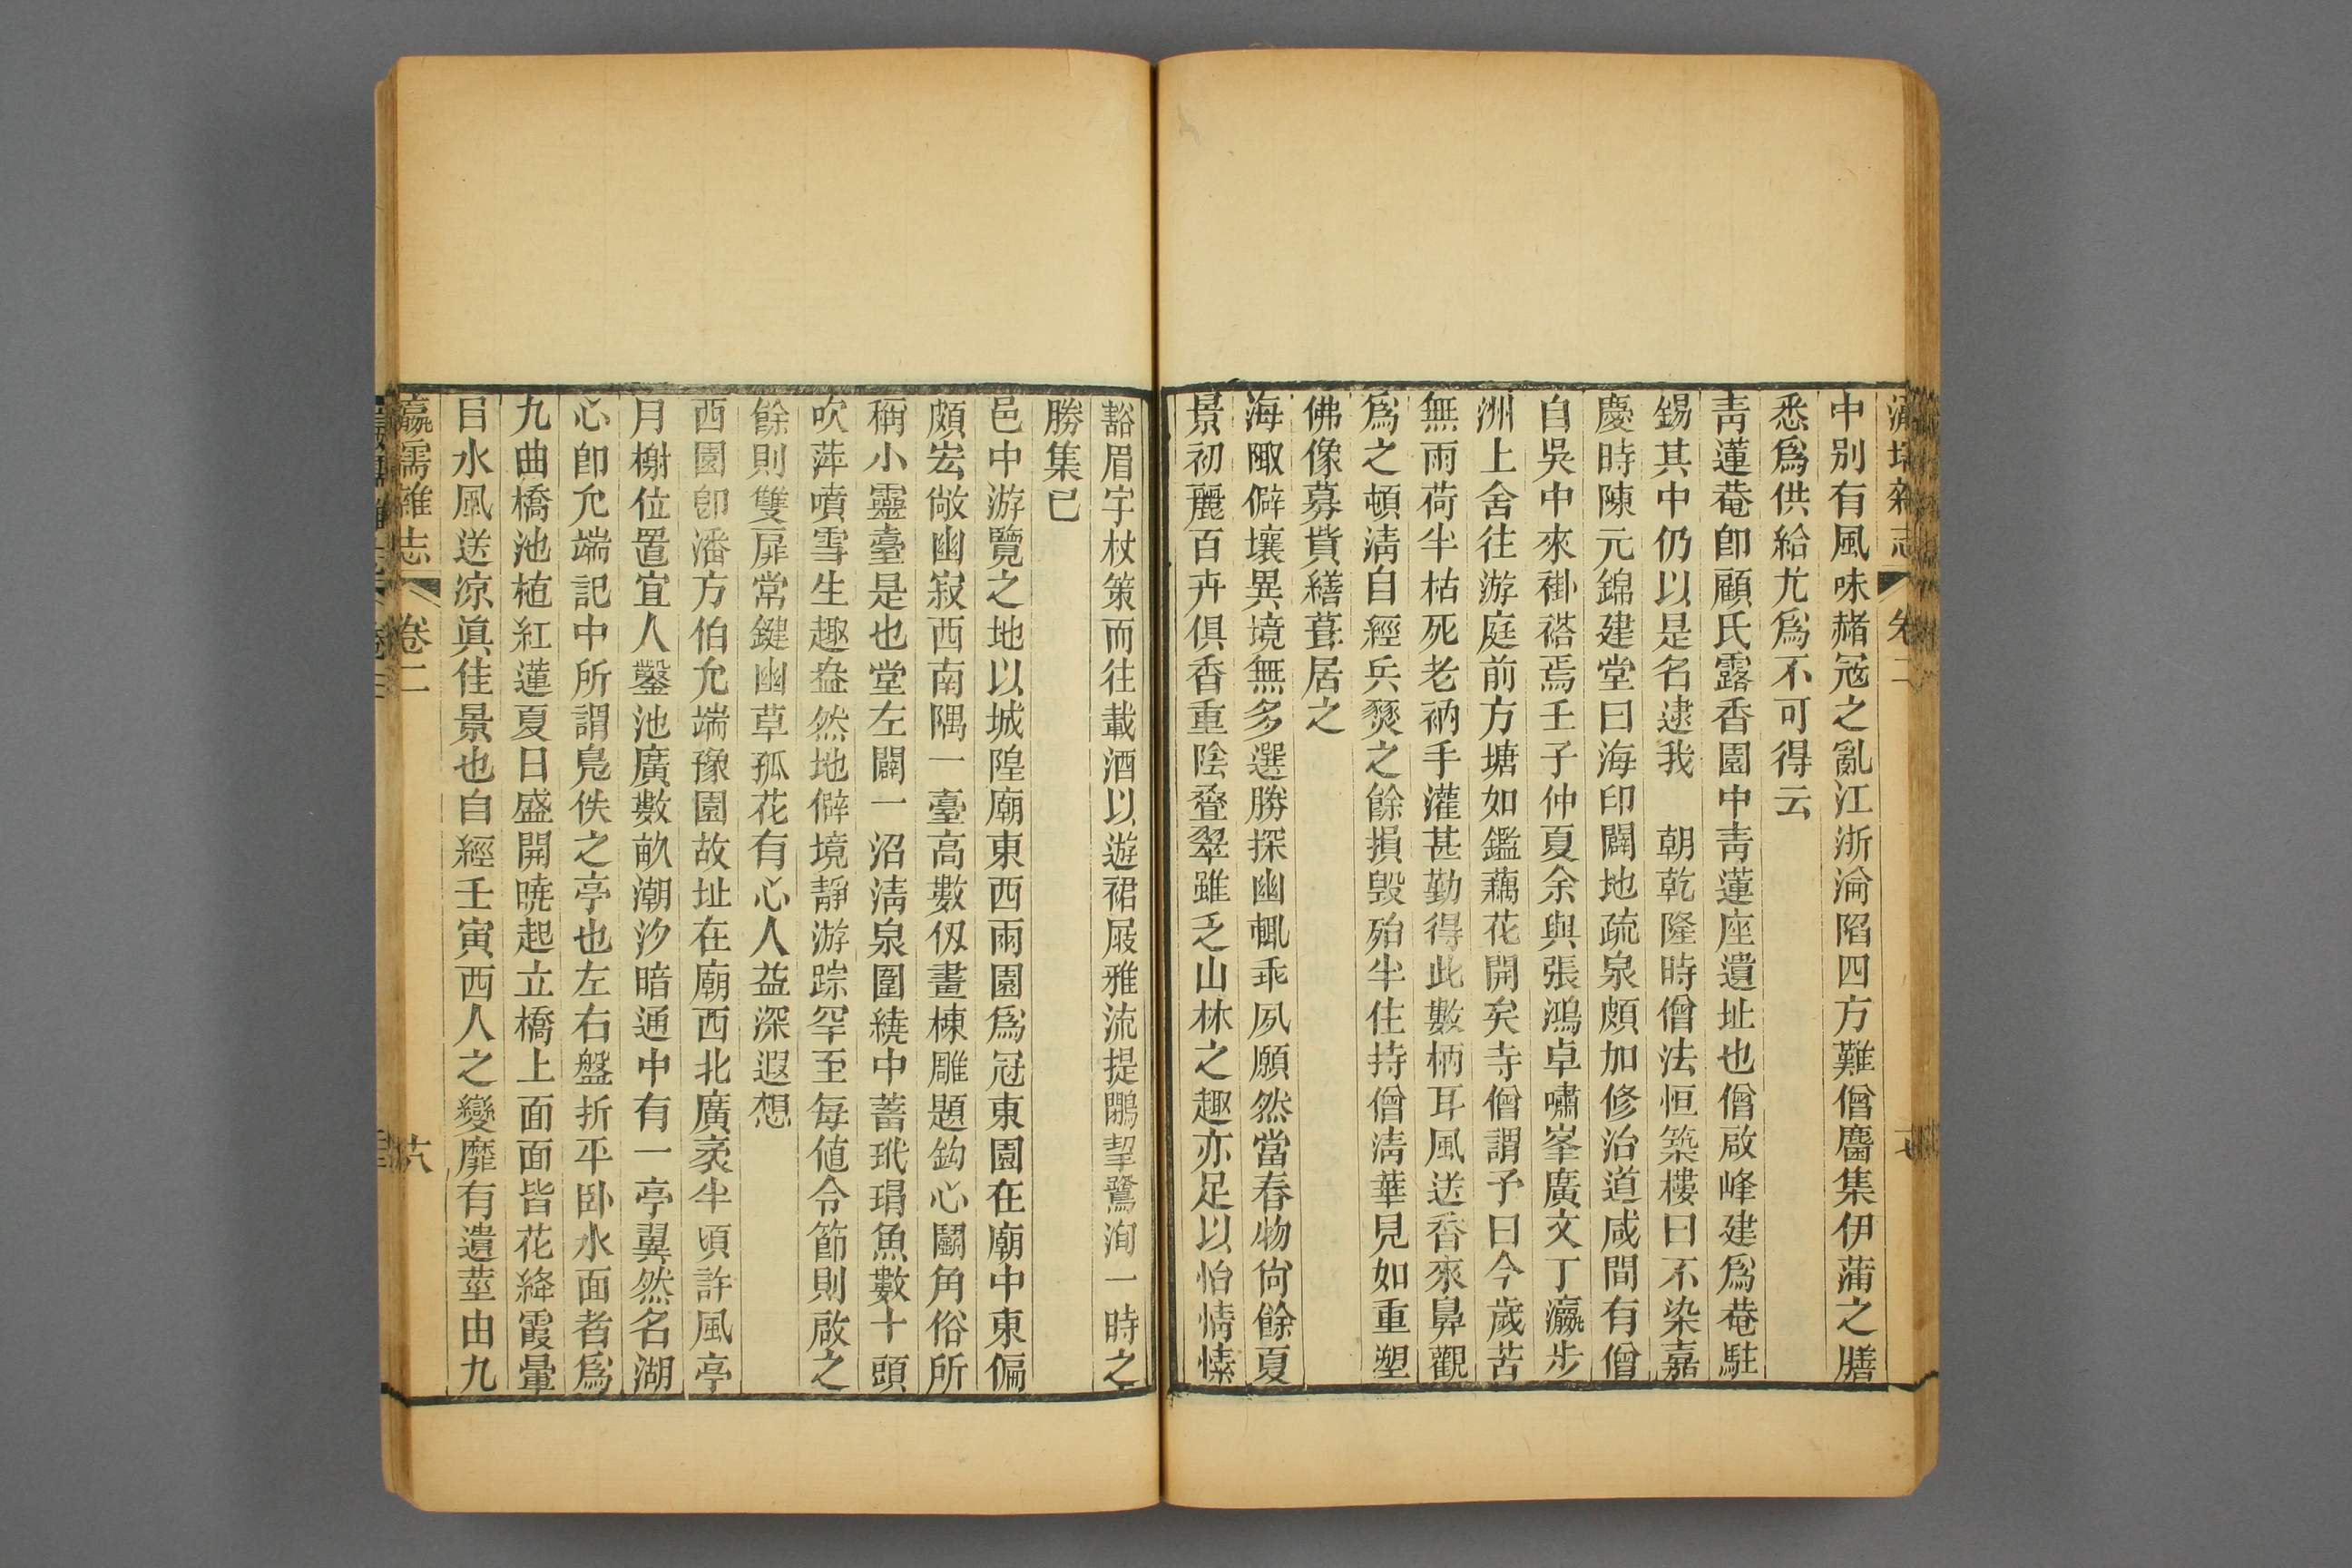 瀛壖雜志 卷二
中別有風味赭冦之亂江浙淪陷四方難僧麕集伊蒲之膳
悉爲供給尤爲不可得云
靑蓮菴卽顧氏露香園中靑蓮座遺址也僧啟峰建爲菴駐
錫其中仍以是名逮我　朝乾隆時僧法恒築樓曰不染嘉
慶時陳元錦建堂曰海印闢地疏泉頗加修治道咸間有僧
自吳中來褂褡焉壬子仲夏余與張鴻卓嘯峯廣文丁瀛步
洲上舍往游庭前方塘如鑑藕花開矣寺僧謂予曰今歲苦
無雨荷半枯死老衲手灌甚勤得此數柄耳風送香來鼻觀
爲之頓淸自經兵燹之餘損毀殆半住持僧淸華見如重塑
佛像募貲繕葺居之
海陬僻壤異境無多選勝探幽輒乖夙願然當春物尙餘夏
景初麗百卉俱香重陰叠翠雖乏山林之趣亦足以怡情愫
豁眉宇杖策而往載酒以遊裙屐雅流提鷳挈鷺洵一時之
勝集已
邑中游覽之地以城隍廟東西兩園爲冠東園在廟中東偏
頗宏敞幽寂西南隅一臺高數仭畫棟雕題鈎心鬬角俗所
稱小靈臺是也堂左闢一沼淸泉圍繞中蓄玳瑁魚數十頭
吹萍噴雪生趣盎然地僻境靜游踪罕至每値令節則啟之
餘則雙扉常鍵幽草孤花有心人益深遐想
西園卽潘方伯允端豫園故址在廟西北廣袤半頃許風亭
月榭位置宜人鑿池廣數畝潮汐暗通中有一亭翼然名湖
心卽允端記中所謂鳧佚之亭也左右盤折平卧水面者爲
九曲橋池植紅蓮夏日盛開曉起立橋上面面皆花絳霞暈
目水風送凉眞佳景也自經壬寅西人之變靡有遺莖由九
瀛壖雜志 卷二 六